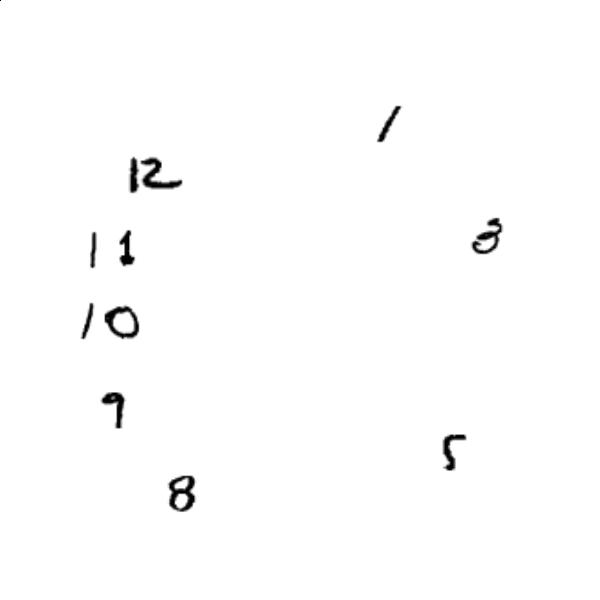 1
12
3
11
10
9
5
8